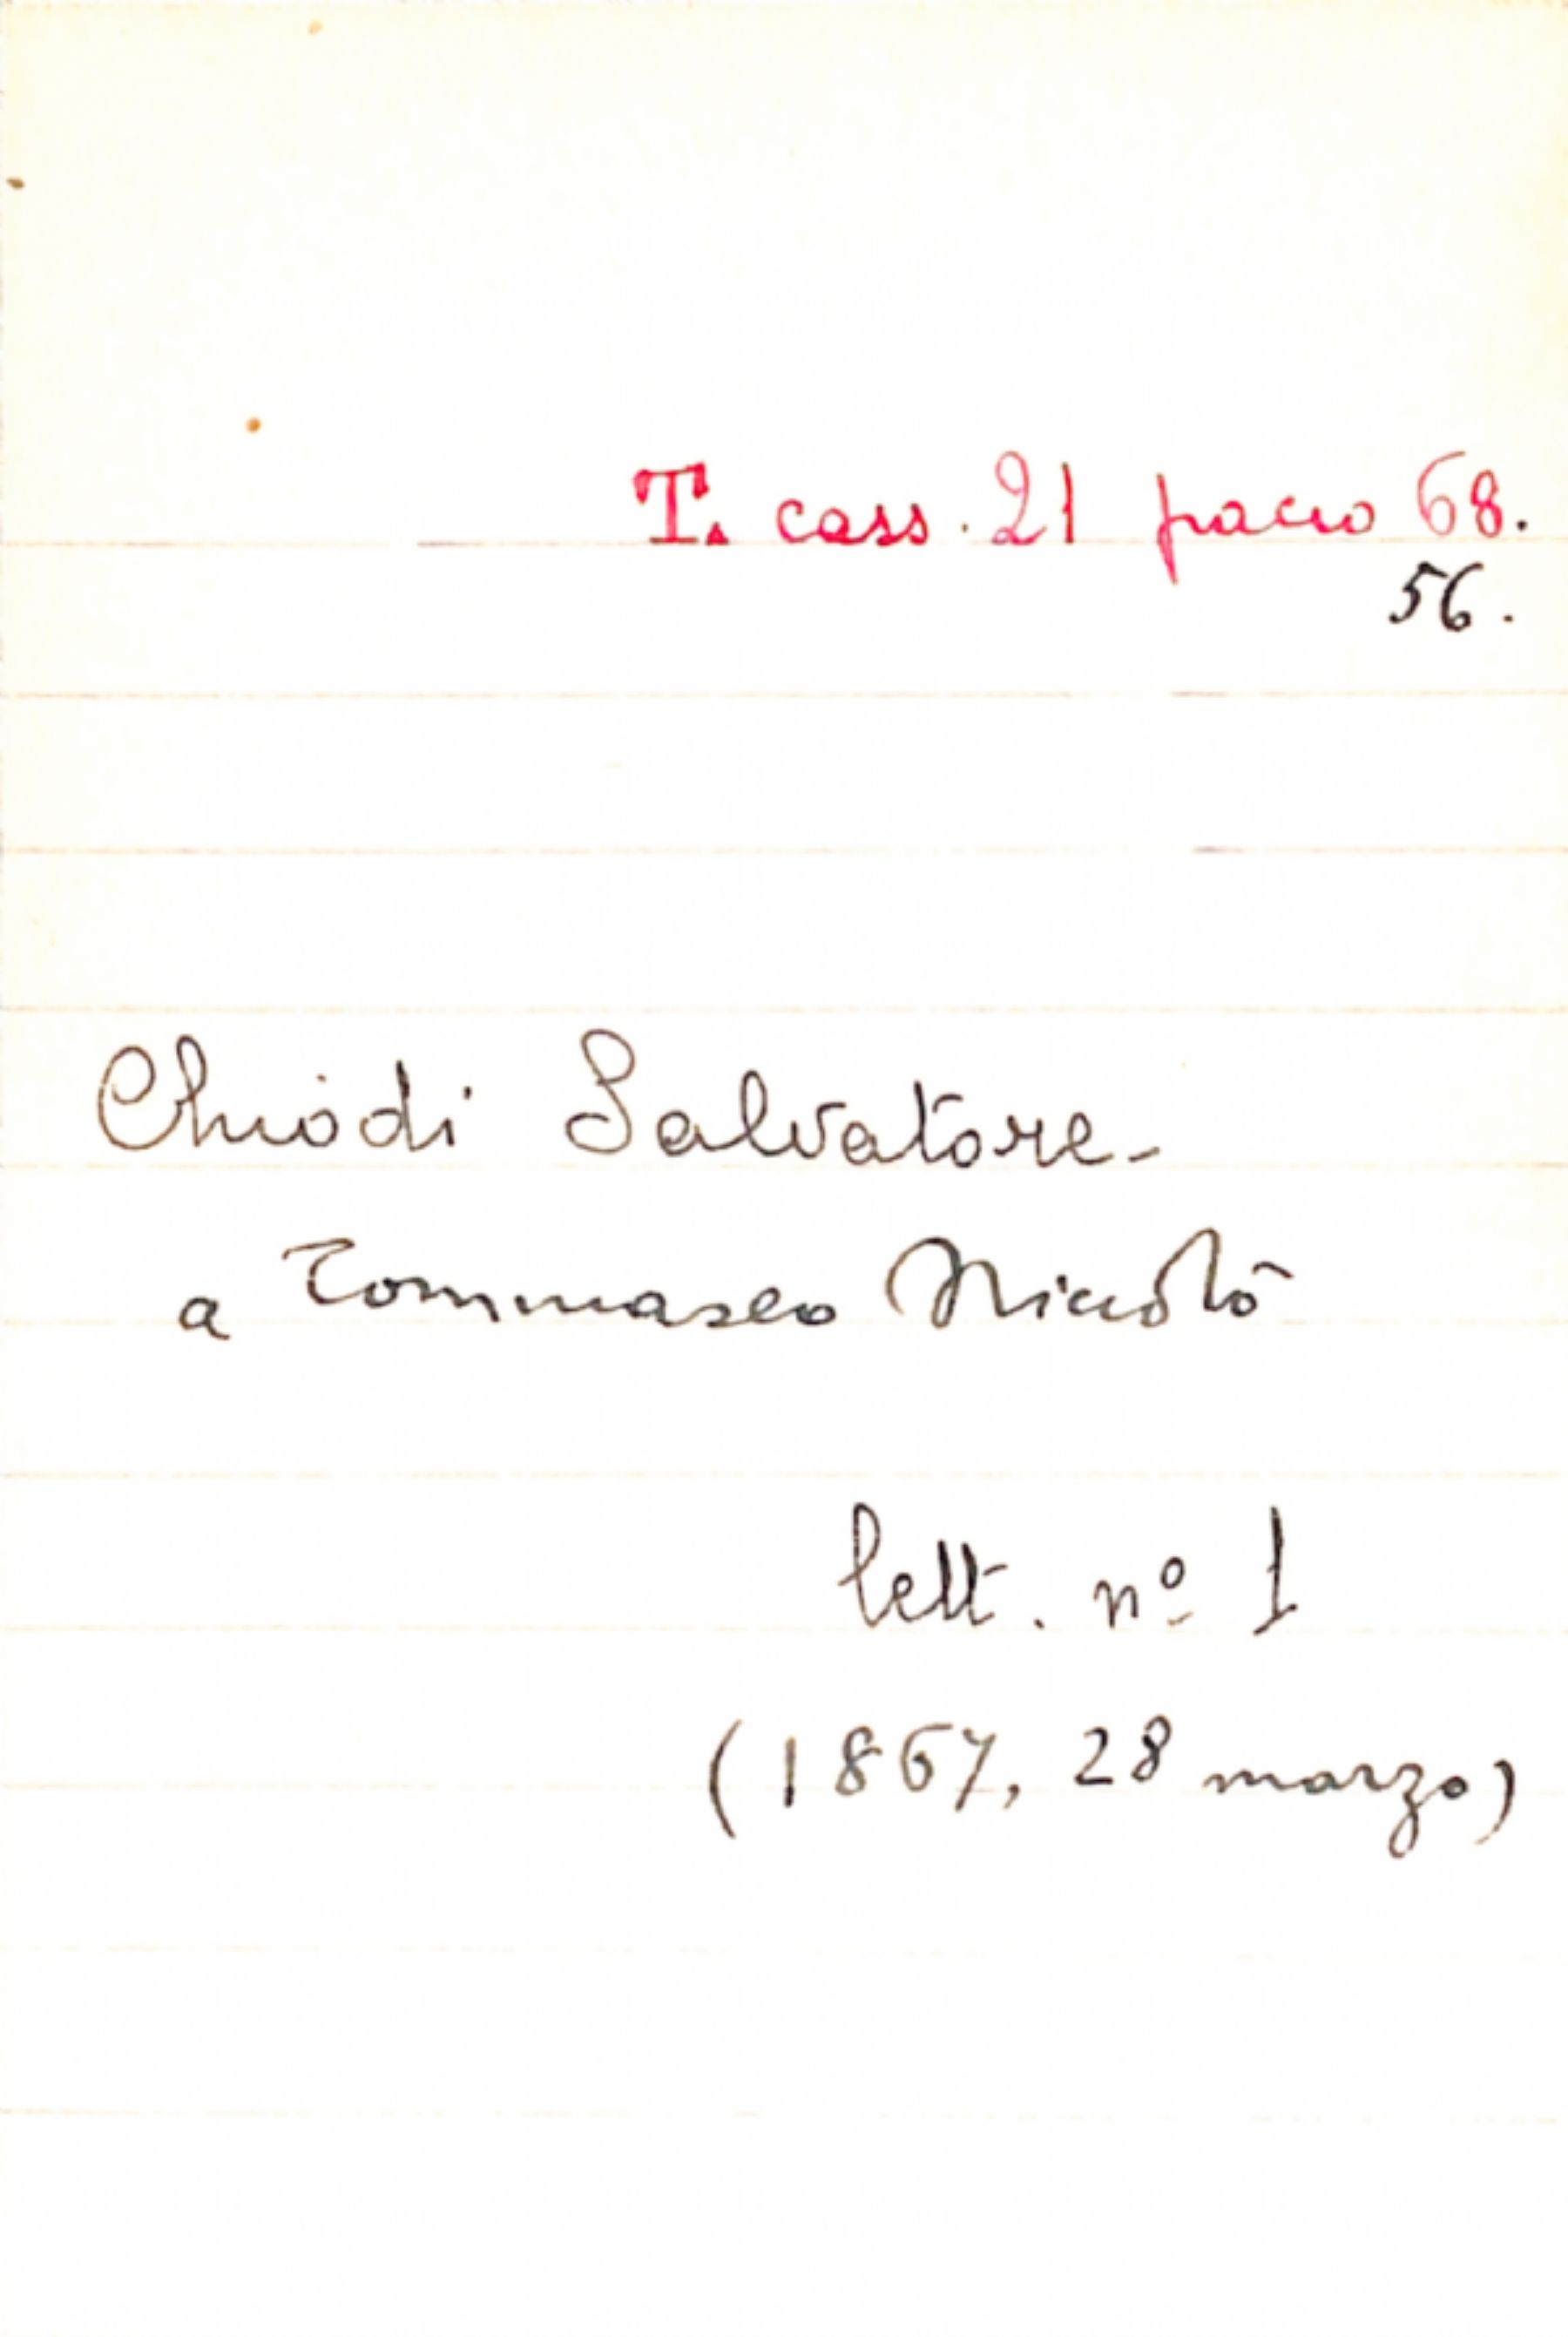 T. cass. 21 pacco 68.
56.
Chiodi Salvatore -
a Tommaseo Niccolò
lett. nº 1
(1867, 28 marzo)